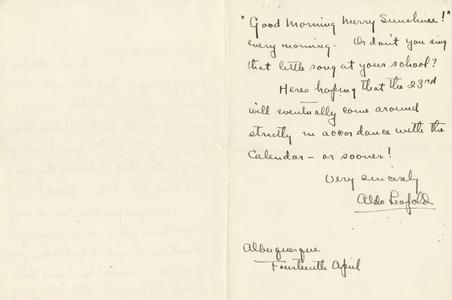 "Good Morning Merry Sunshine!"
every morning. Or don't you sing
that little song at your school?
Heres hoping that the 23rd
will eventually come around
strictly in accordance with the
Calendar – or sooner!
Very sincerely
Aldo Leopold
Albuquerque
Fourteenth April